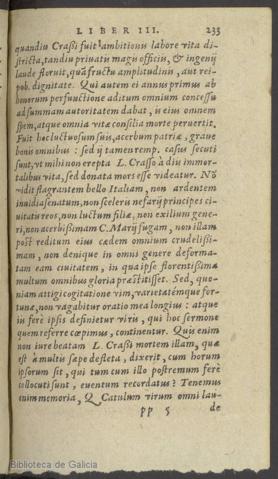 LIBER III. 235
quandiu Craßi fuit ambitionis labore vita di-
stricta, tandiu priuatis magis officiis, & ingenij
laude floruit, quā fructu amplitudinis, aut rei-
pob. dignitate. Qui autem ei annus primus ab
honorum perfunctione aditum omnium concessu
ad summam autoritatem dabat, is eius omnem
spem, atque omnia vitæ consilia morte peruertit.
Fuit hoc luctuosum suis, acerbum patriæ, graue
bonis omnibus : sed ij tamen remp. casus secuti
sunt, vt mihi non erepta L. Crasso à diis immor-
talibus vita, sed donata mors esse videatur. Nō
vidit flagrantem bello Italiam, non ardentem
inuidia senatum, non sceleris nefarij principes ci-
uitatis reos, non luctum filiæ, non exilium gene-
ri, non acerbißimam C. Marij fugam, non illam
post reditum eius cædem omnium crudelißi-
mam, non denique in omni genere deforma-
tam eam ciuitatem, in qua ipse florentißima
multum omnibus gloria præstitisset. Sed, quo-
niam attigi cogitatione vim, varietatémque for-
tunæ, non vagabitur oratio mea longius : atque
iis ferè ipsis definietur viris, qui hoc sermone
quem referre cœpimus, continentur. Quis enim
non iure beatam L. Craßi mortem illam, quæ
est à multis sæpe defleta, dixerit, cum horum
ipsorum sit, qui tum cum illo postremum ferè
collocuti sunt, euentum recordatus? Tenemus
enim memoria, Q. Catulum virum omni lau-
PP 5 de
Biblioteca de Galicia